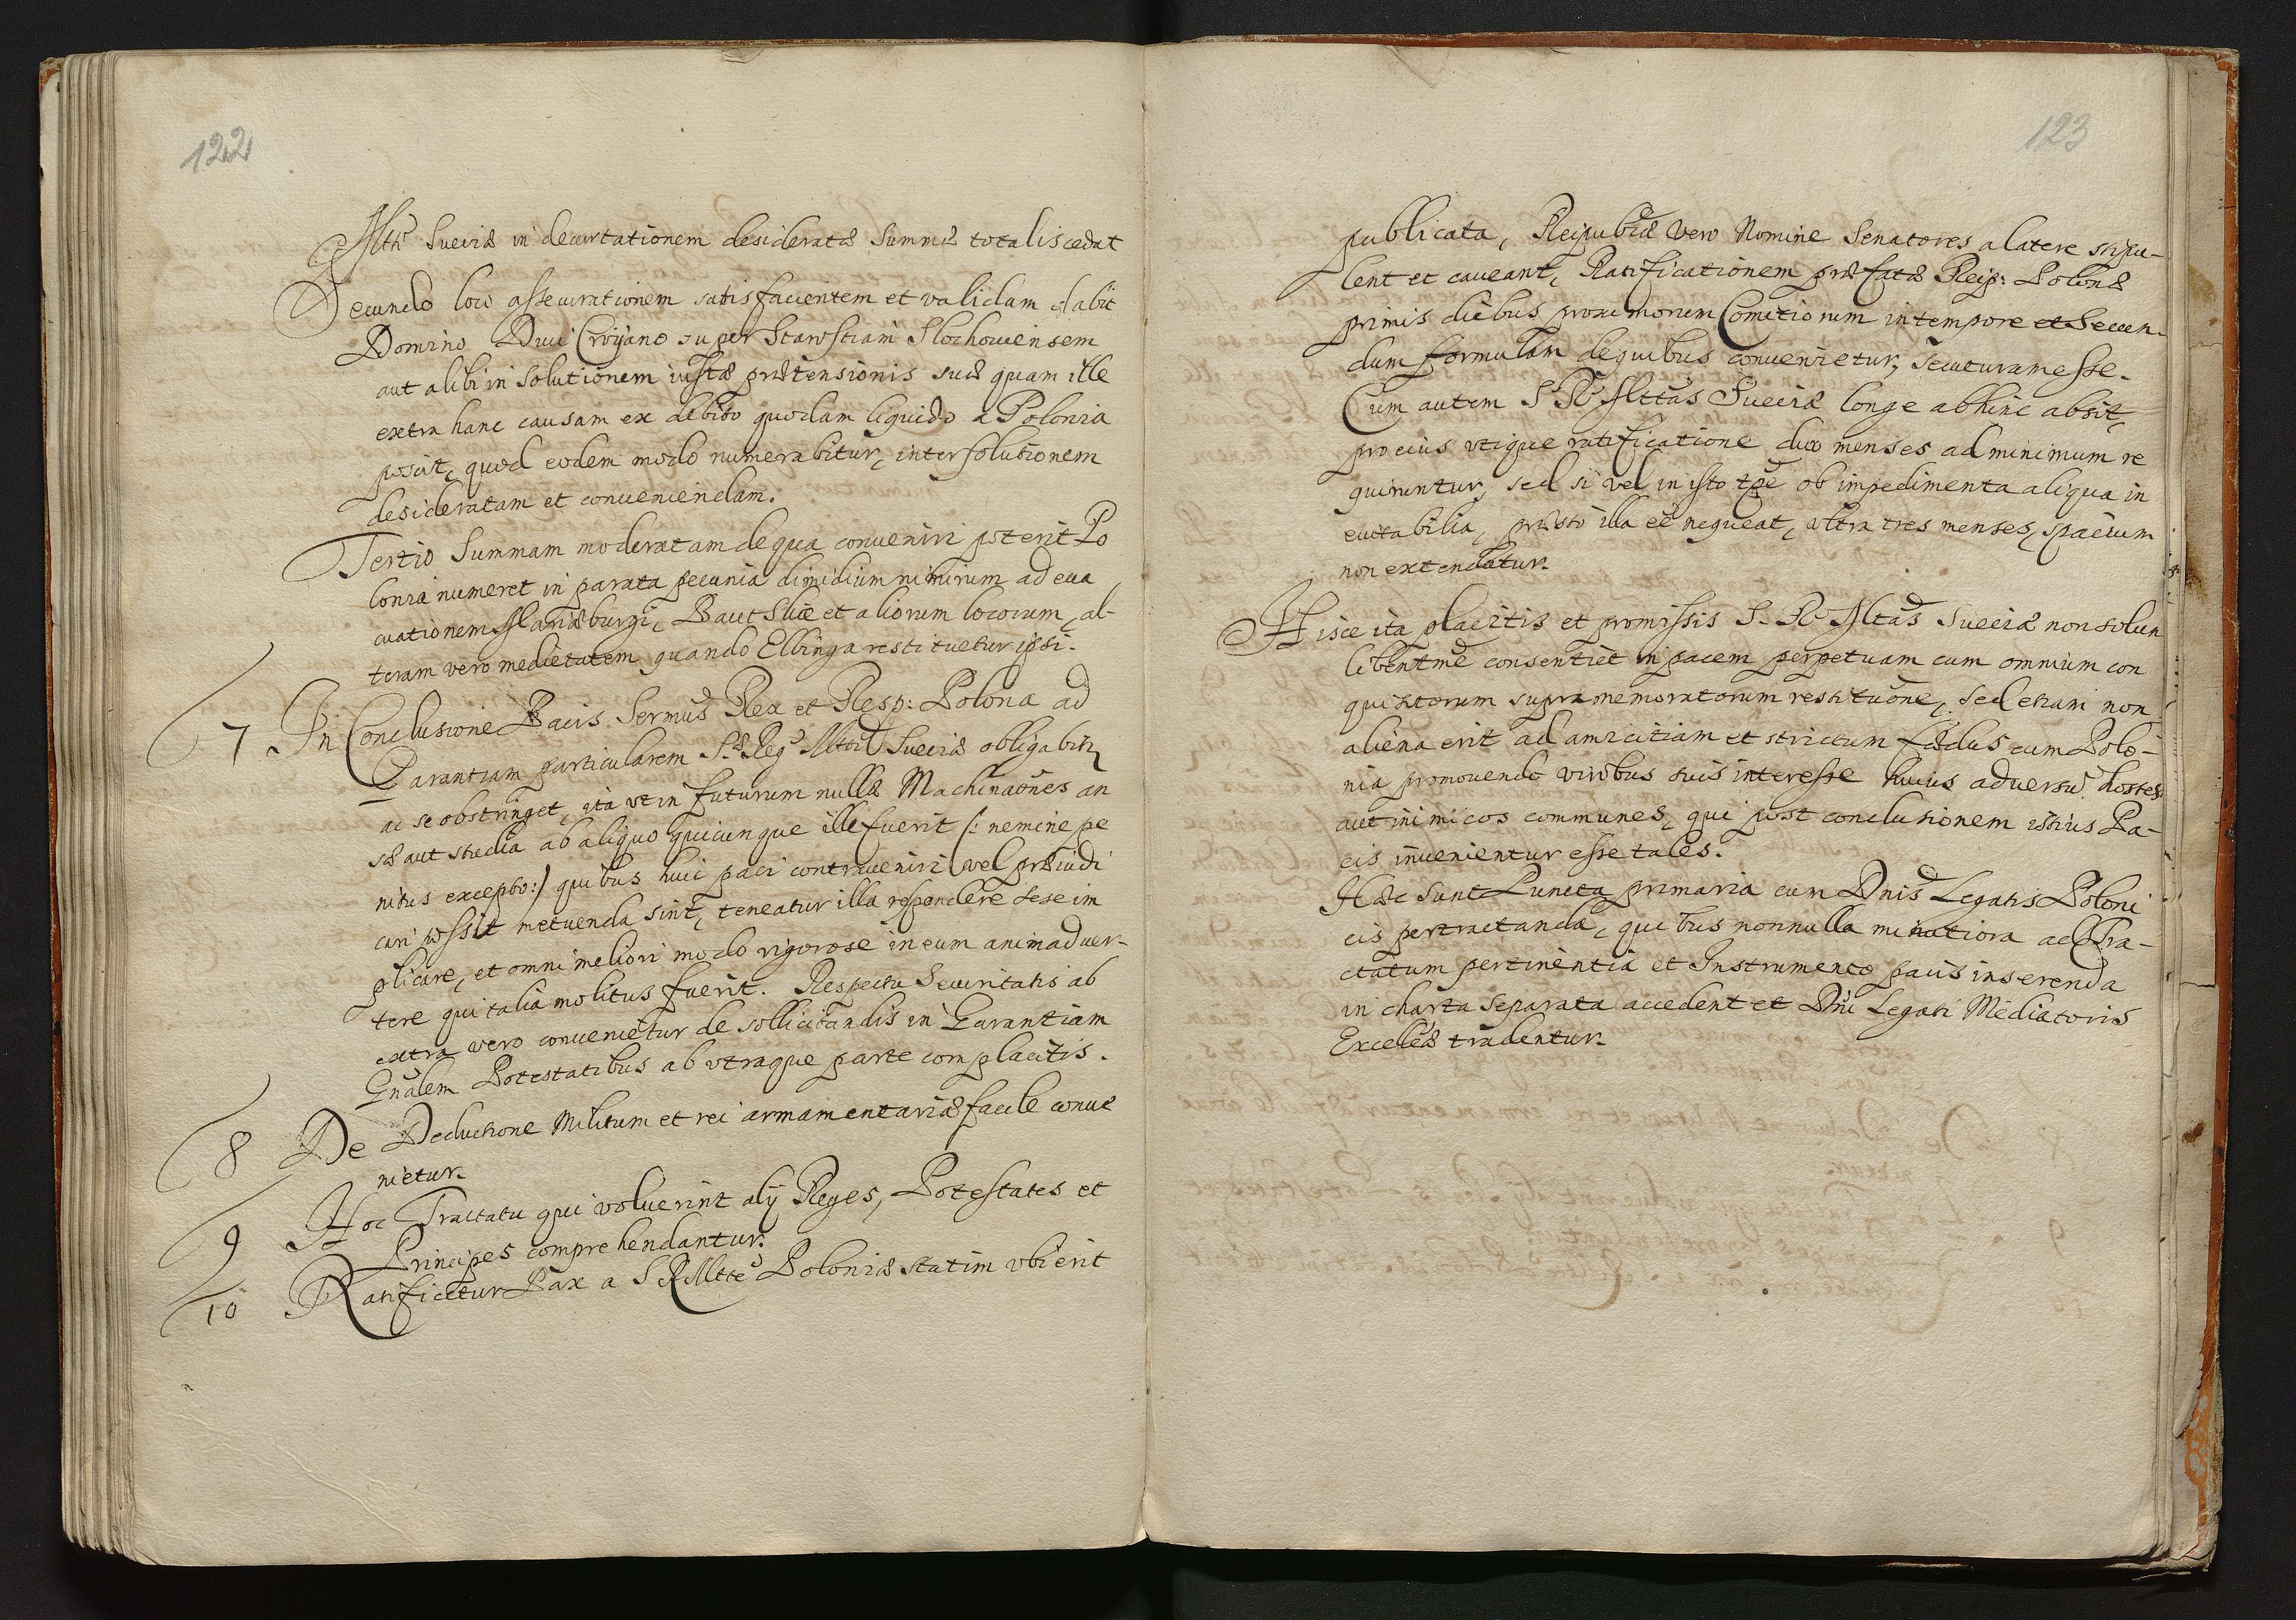 122
Altti Sueciæ in decurtationem desideratæ Summæ totalis cedat
Secundo loco assecurationem satisfacientem et validam dabit
Domino Duci Croÿano super Starostiam Slochouiensem
aut alibi in Solutionem iustæ prætensionis suæ quam ille
extra hanc causam ex debito quodam liquido a Polonia
poscit, quod eodem modo numerabitur, inter solutionem
desideratam et conueniendam.
Tertio Summam moderatam de qua conueniri poterit Po
lonia numeret in parata pecunia dimidium nimirum ad eua
cuationem Mariæburgi, Bautsliæ et aliorum locorum, al-
teram vero medietatem quando Elbinga restituetur ipsi.
7 In Conclusione Pacis Sermus Rex et Resp: Polona ad
Garantiam particularem S.æ Reg Mtti Sueciæ obligabitr
ac se obstringet, ita vt in futurum nullæ Machinaões an
sæ aut studia ab aliquo quicunque ille fuerit /: nemine pe
nitus excepto:/ quibus huic paci contraueniri vel præiudi
cari possit metuenda sint, teneatur illa respondere sese im
plicare, et omni meliori modo rigorose in eum animaduer-
tere qui talia molitus fuerit. Respectu Securitatis ab
extra vero conuenietur de sollicitandis in Garantiam
Gnãlem Potestatibus ab vtraque parte complacitis.
8 De Deductione Militum et rei armamentariæ facile conue
nietur.
9 Hoc Tractatu qui voluerint alij Reges, Potestates et
Principes comprehendantur.
10 Ratificetur Pax a S R Mtte Poloniæ statim vbi erit
123
publicata, Reipubcæ vero Nomine Senatores a latere stipu-
lent et caueant, Ratificationem præfatæ Reip: Polonæ
primis diebus proximorum Comitiorum in tempore et Secun-
dum formulam de quibus conuenietur, secuturam esse.
Cum autem S. R. Alttas Sueciæ longe abhinc absit,
pro eius vtique ratificatione duo menses ad minimum re
quiruntur, sed si vel in isto tpe ob impedimenta aliqua in
euitabilia, præsto illa eê nequeat, vltra tres menses, spacium
non extendatur.
Hisce ita placitis et promissis S. R. Altas Sueciæ non solun
libentme consentiet in pacem perpetuam cum omnium con
quisitorum supra memoratorum restituõne, sed etiam non
aliena erit ad amicitiam et strictum fædus cum Polo-
nia promouendo viribus suis interesse huius aduersu hostes
aut inimicos communes, qui post conclusionem istius Pa-
cis inuenientur esse tales.
Hæc sunt Puncta primaria cum Dnis Legatis Poloni
cis pertractanda, quibus nonnulla minutiora ad Tra-
ctatum pertinentia et Instrumento pacis inserenda
in charta separata accedent et Dni Legati Mediatoris
Excellæ tradentur.